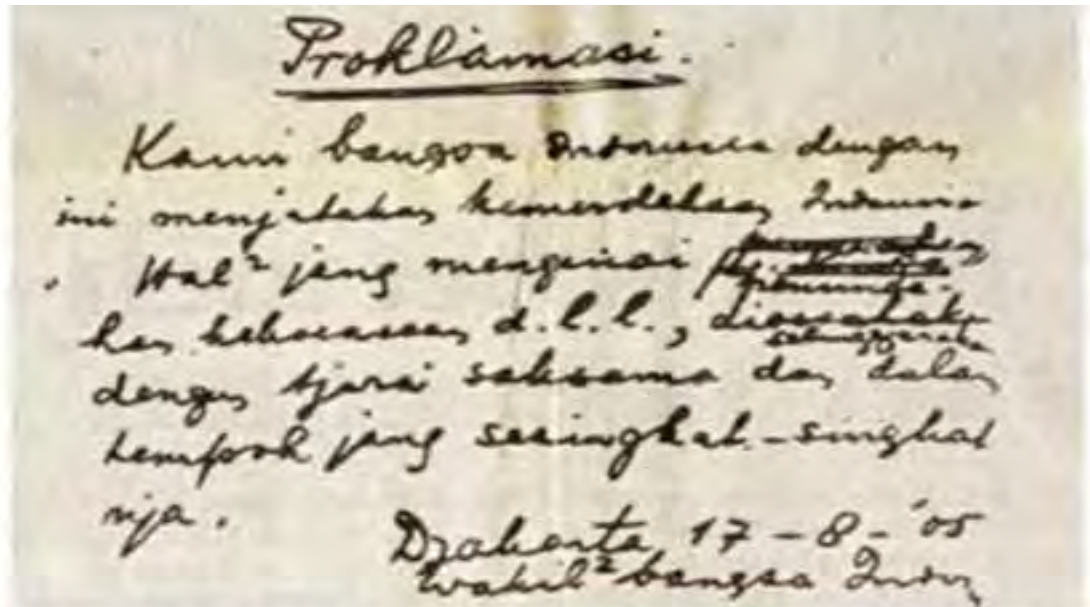 Proklamasi.
Kami bangsa Indonesia dengan
ini menjatakan kemerdekaan Indonesia
Hal² jang mengenai
han kekoeasaan d.l.l.,
dengan tjara saksama dan dalam
tempoh jang sesingkat-singkat
nja.
Djakarta, 17-8-'05
Wakil² bangsa